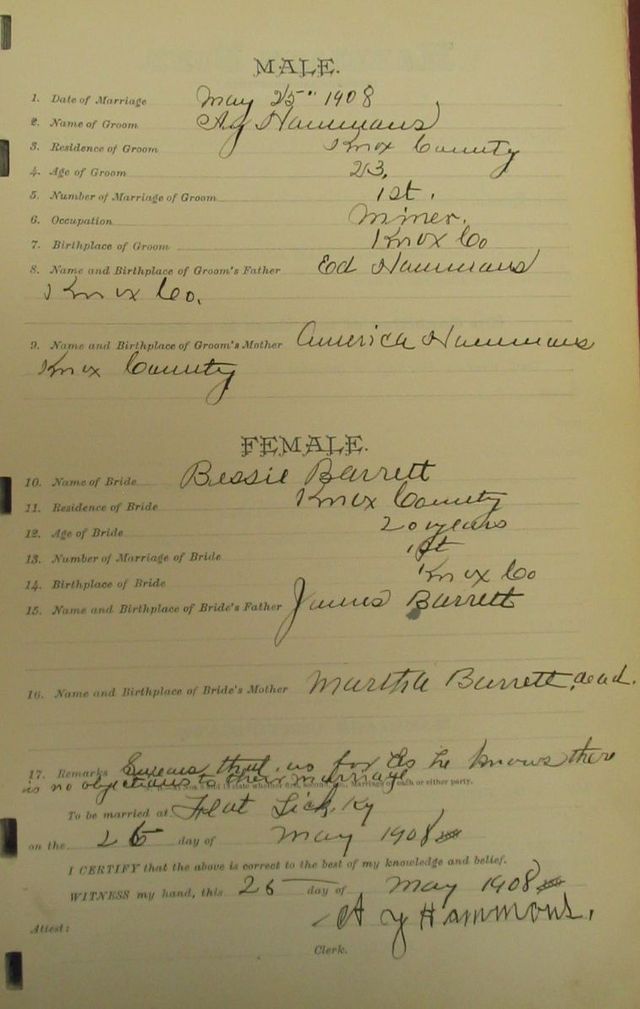 MALE.
1. Date of Marriage May 25" 1908
2. Name of Groom A y Hammons
3. Residence of Groom Knox County
4. Age of Groom 23.
5. Number of Marriage of Groom 1st.
6. Occupation Miner.
7. Birthplace of Groom Knox Co
8. Name and Birthplace of Groom's Father Ed Hammons
Knox Co.
9. Name and Birthplace of Groom's Mother America Hammons
Knox County
FEMALE.
10. Name of Bride Bessie Barrett
11. Residence of Bride Knox County
12. Age of Bride 20 years
13. Number of Marriage of Bride 1st
14. Birthplace of Bride Knox Co
15. Name and Birthplace of Bride's Father James Barrett
16. Name and Birthplace of Bride's Mother Martha Barrett, dead.
17. Remarks Swears that as far as he knows there
is no objections to their marriage
state whether marriage of each or either party.
To be married at Flat Lick, Ky
on the 25 day of May 1908
I CERTIFY that the above is correct to the best of my knowledge and belief.
WITNESS my hand, this 25 day of May 1908
A y Hammons.
Attest:
Clerk.